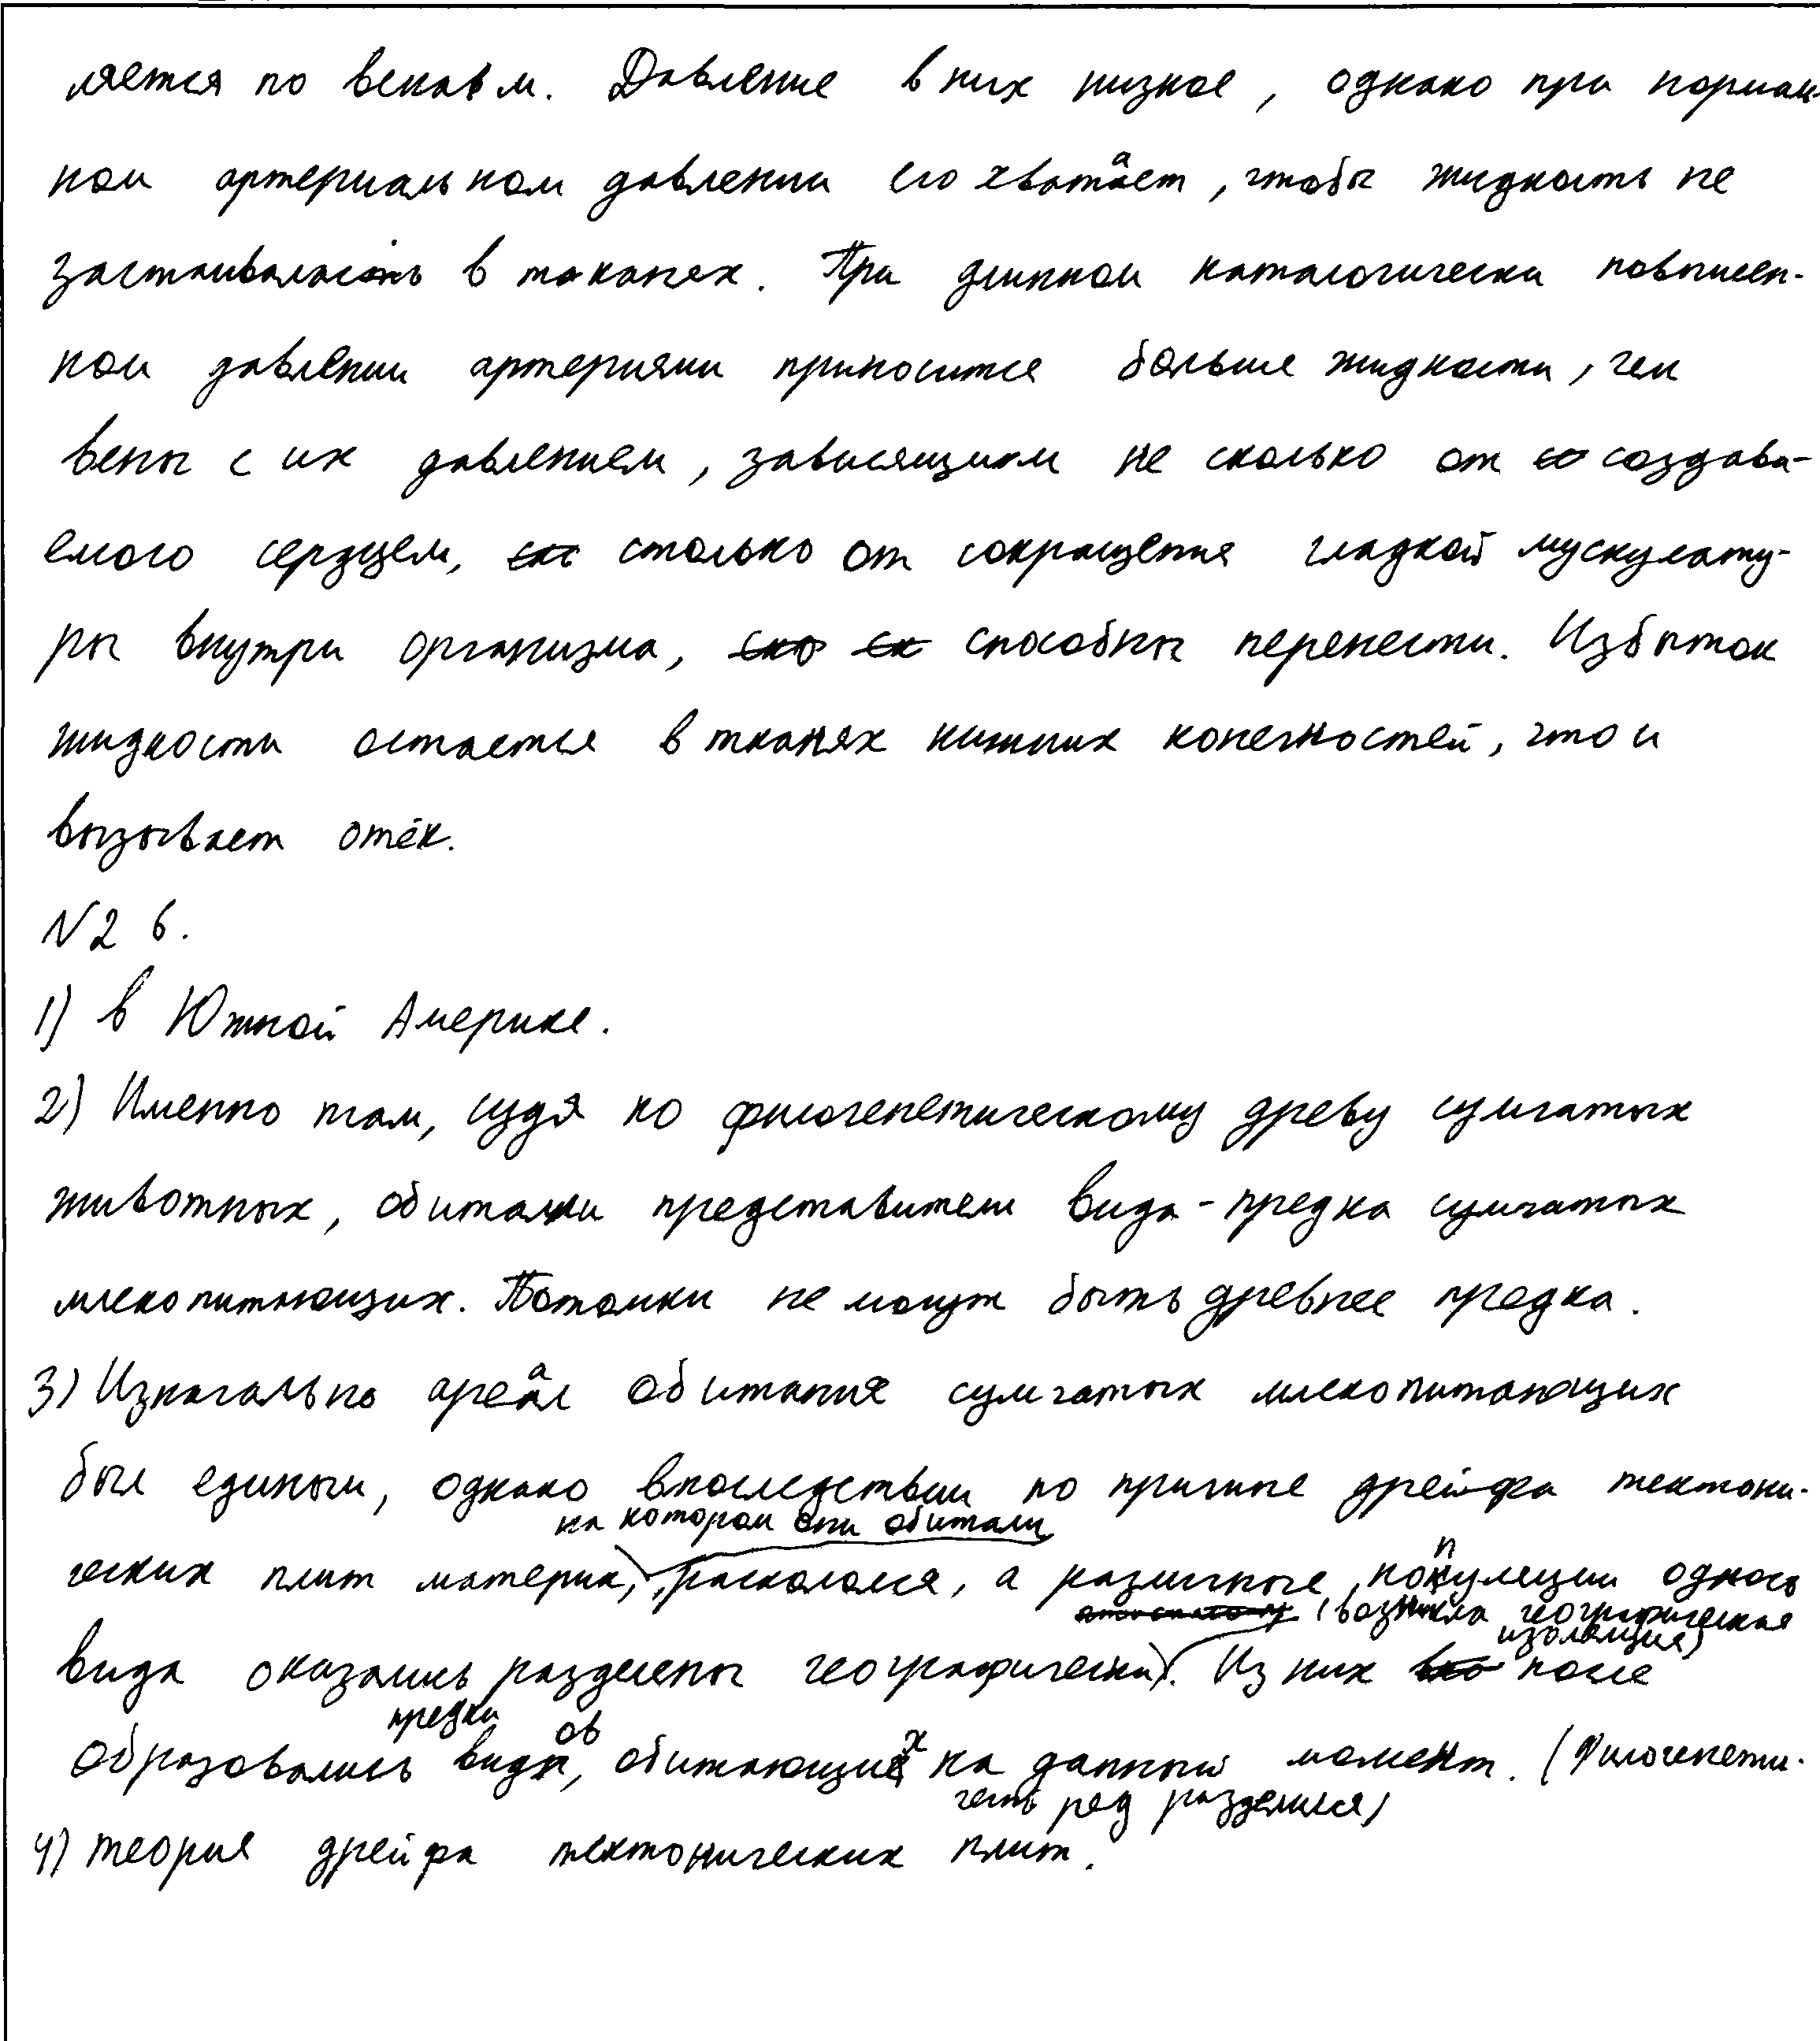 ляется по венам. Давление в них низкое, однако при нормаль-
ном артериальном давлении его хватает, чтобы жидкость не
застаивалась в тканях. При длинном патологически повышен-
ном давлении артериями приносится больше жидкости, чем
вены с их давлением, зависящим не сколько от создава-
емого сердцем, столько от сокращения гладкой мускулату-
ры внутри организма, способны перенести. Избыток
жидкости остается в тканях нижних конечностей, что и
вызывает отёк.
N26.
1) в Южной Америке.
2) Именно там, судя по филогенетическому древу сумчатых
животных, обитали представители вида-предка сумчатых
млекопитающих. Потомки не могут быть древнее предка.
3) Изначально ареал обитания сумчатых млекопитающих
был единым, однако впоследствии по причине дрейфа тектони-
ческих плит материк, на котором они обитали, раскололся, а различные популяции одного
вида оказались разделены географически (возникла географическая изоляция). Из них после
образовались предки видов, обитающих на данный момент. (Филогенети-
чески ряд разделился)
4) теория дрейфа тектонических плит.